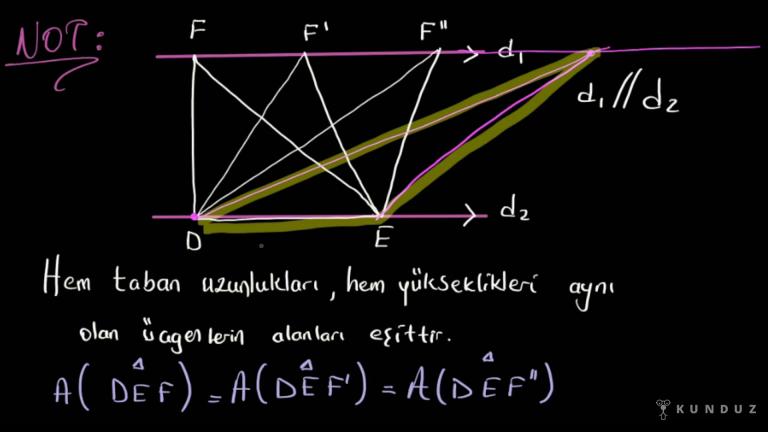 NOT:
F F' F" d₁
d₁ // d₂
D E d₂
Hem taban uzunlukları, hem yükseklikleri aynı
olan üçgenlerin alanları eşittir.
A(DEF) = A(DEF') = A(DEF")
KUNDUZ